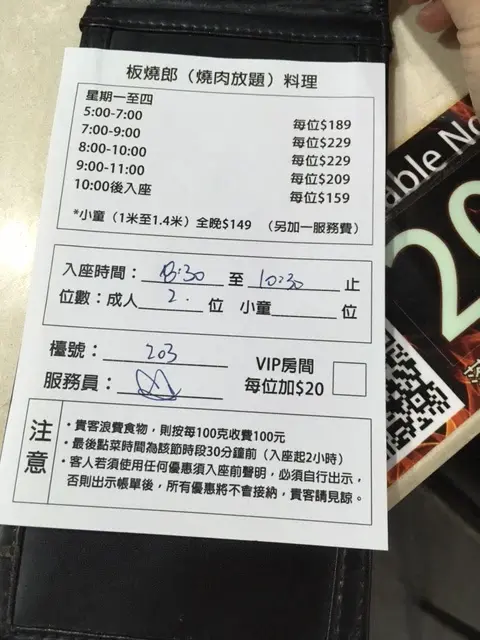 板燒郎（燒肉放題）料理
星期一至四
5:00-7:00 每位$189
7:00-9:00 每位$229
8:00-10:00 每位$229
9:00-11:00 每位$209
10:00後入座 每位$159
*小童（1米至1.4米）全晚$149 （另加一服務費）
入座時間： 8:30 至 10:30 止
位數：成人 2. 位 小童 位
檯號： 203
VIP房間
每位加$20
服務員：
注意
・貴客浪費食物，則按每100克收費100元
・最後點菜時間為該節時段30分鐘前（入座起2小時）
・客人若須使用任何優惠須入座前聲明，必須自行出示，
否則出示帳單後，所有優惠將不會接納，貴客請見諒。
able No
20